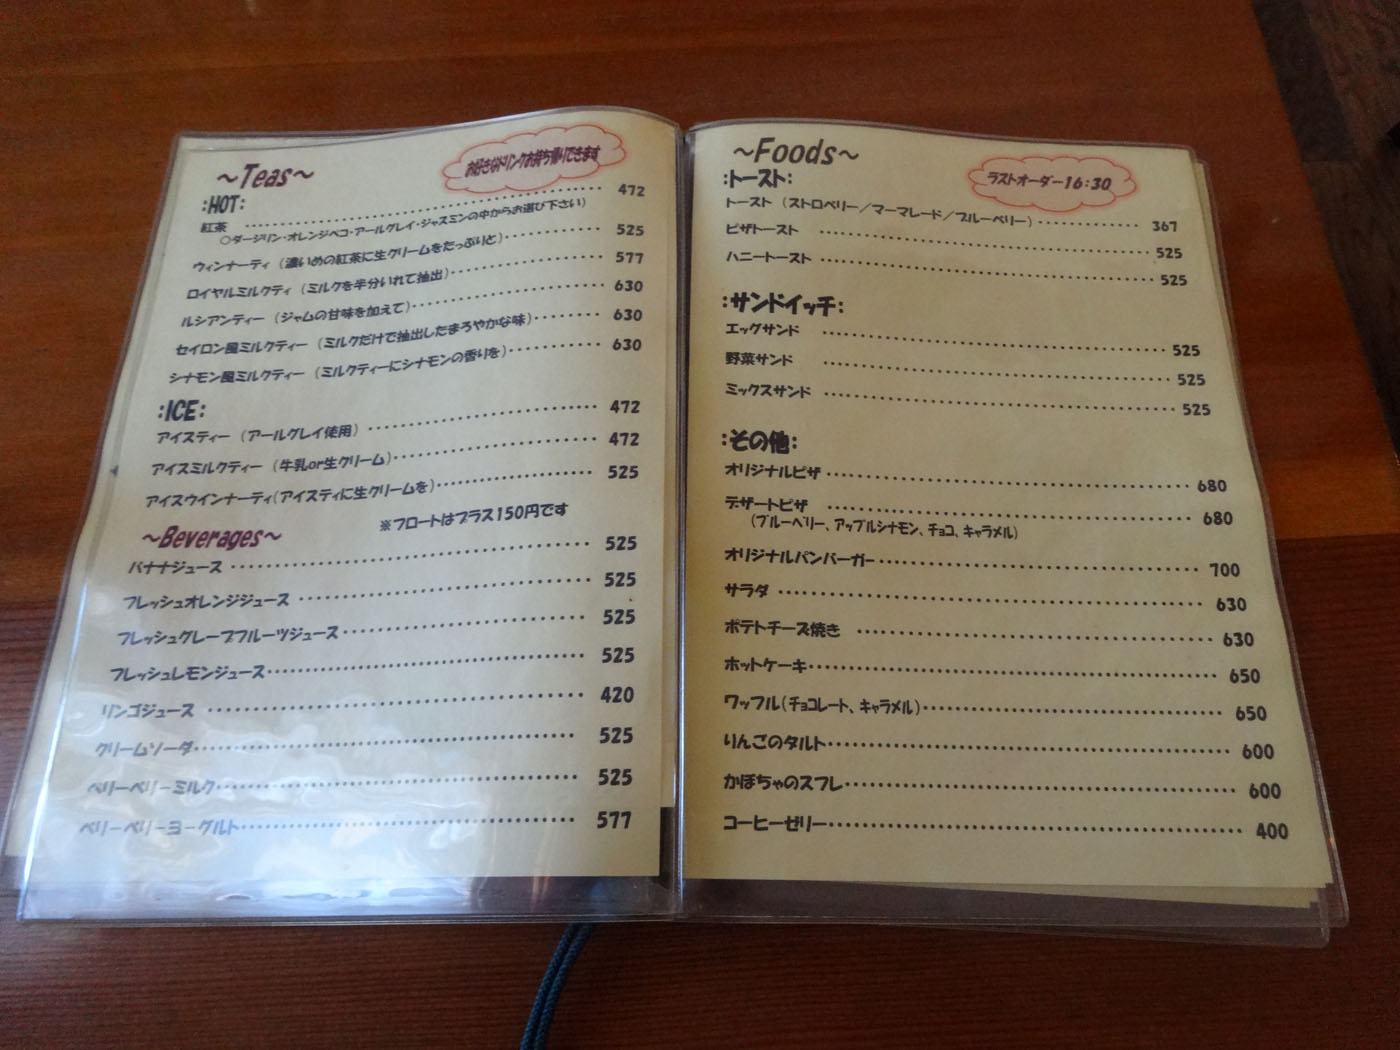 ～Teas～
お好きなドリンクお持ち帰りできます
:HOT:
紅茶 ‥‥‥‥‥‥‥‥‥‥‥‥ 472
○ダージリン・オレンジペコ・アールグレイ・ジャスミンの中からお選び下さい)
ウィンナーティ (濃いめの紅茶に生クリームをたっぷりと)‥‥‥‥‥ 525
ロイヤルミルクティ (ミルクを半分いれて抽出)‥‥‥‥‥ 577
ルシアンティー (ジャムの甘味を加えて)‥‥‥‥‥ 630
セイロン風ミルクティー (ミルクだけで抽出したまろやかな味)‥‥‥ 630
シナモン風ミルクティー (ミルクティーにシナモンの香りを)‥‥‥ 630
:ICE:
アイスティー (アールグレイ使用) ‥‥‥‥‥ 472
アイスミルクティー (牛乳or生クリーム)‥‥‥‥‥ 472
アイスウインナーティ(アイスティに生クリームを)‥‥‥‥‥ 525
※フロートはプラス150円です
～Beverages～
バナナジュース ‥‥‥‥‥‥‥‥‥ 525
フレッシュオレンジジュース ‥‥‥‥‥‥‥ 525
フレッシュグレープフルーツジュース‥‥‥‥‥‥ 525
フレッシュレモンジュース‥‥‥‥‥‥‥ 525
リンゴジュース ‥‥‥‥‥‥‥‥‥ 420
クリームソーダ‥‥‥‥‥‥‥‥‥ 525
ベリーベリーミルク‥‥‥‥‥‥‥‥‥ 525
ベリーベリーヨーグルト‥‥‥‥‥‥‥‥ 577
～Foods～
ラストオーダー16:30
:トースト:
トースト (ストロベリー／マーマレード／ブルーベリー)‥‥‥‥‥ 367
ピザトースト ‥‥‥‥‥‥‥‥‥ 525
ハニートースト ‥‥‥‥‥‥‥‥‥ 525
:サンドイッチ:
エッグサンド ‥‥‥‥‥‥‥‥‥ 525
野菜サンド ‥‥‥‥‥‥‥‥‥ 525
ミックスサンド ‥‥‥‥‥‥‥‥‥ 525
:その他:
オリジナルピザ‥‥‥‥‥‥‥‥‥ 680
デザートピザ ‥‥‥‥‥‥‥‥‥ 680
(ブルーベリー、アップルシナモン、チョコ、キャラメル)
オリジナルパンバーガー‥‥‥‥‥‥‥‥ 700
サラダ ‥‥‥‥‥‥‥‥‥‥ 630
ポテトチーズ焼き ‥‥‥‥‥‥‥‥ 630
ホットケーキ‥‥‥‥‥‥‥‥‥‥ 650
ワッフル(チョコレート、キャラメル)‥‥‥‥‥‥‥ 650
りんごのタルト‥‥‥‥‥‥‥‥‥ 600
かぼちゃのスフレ‥‥‥‥‥‥‥‥‥ 600
コーヒーゼリー‥‥‥‥‥‥‥‥‥ 400